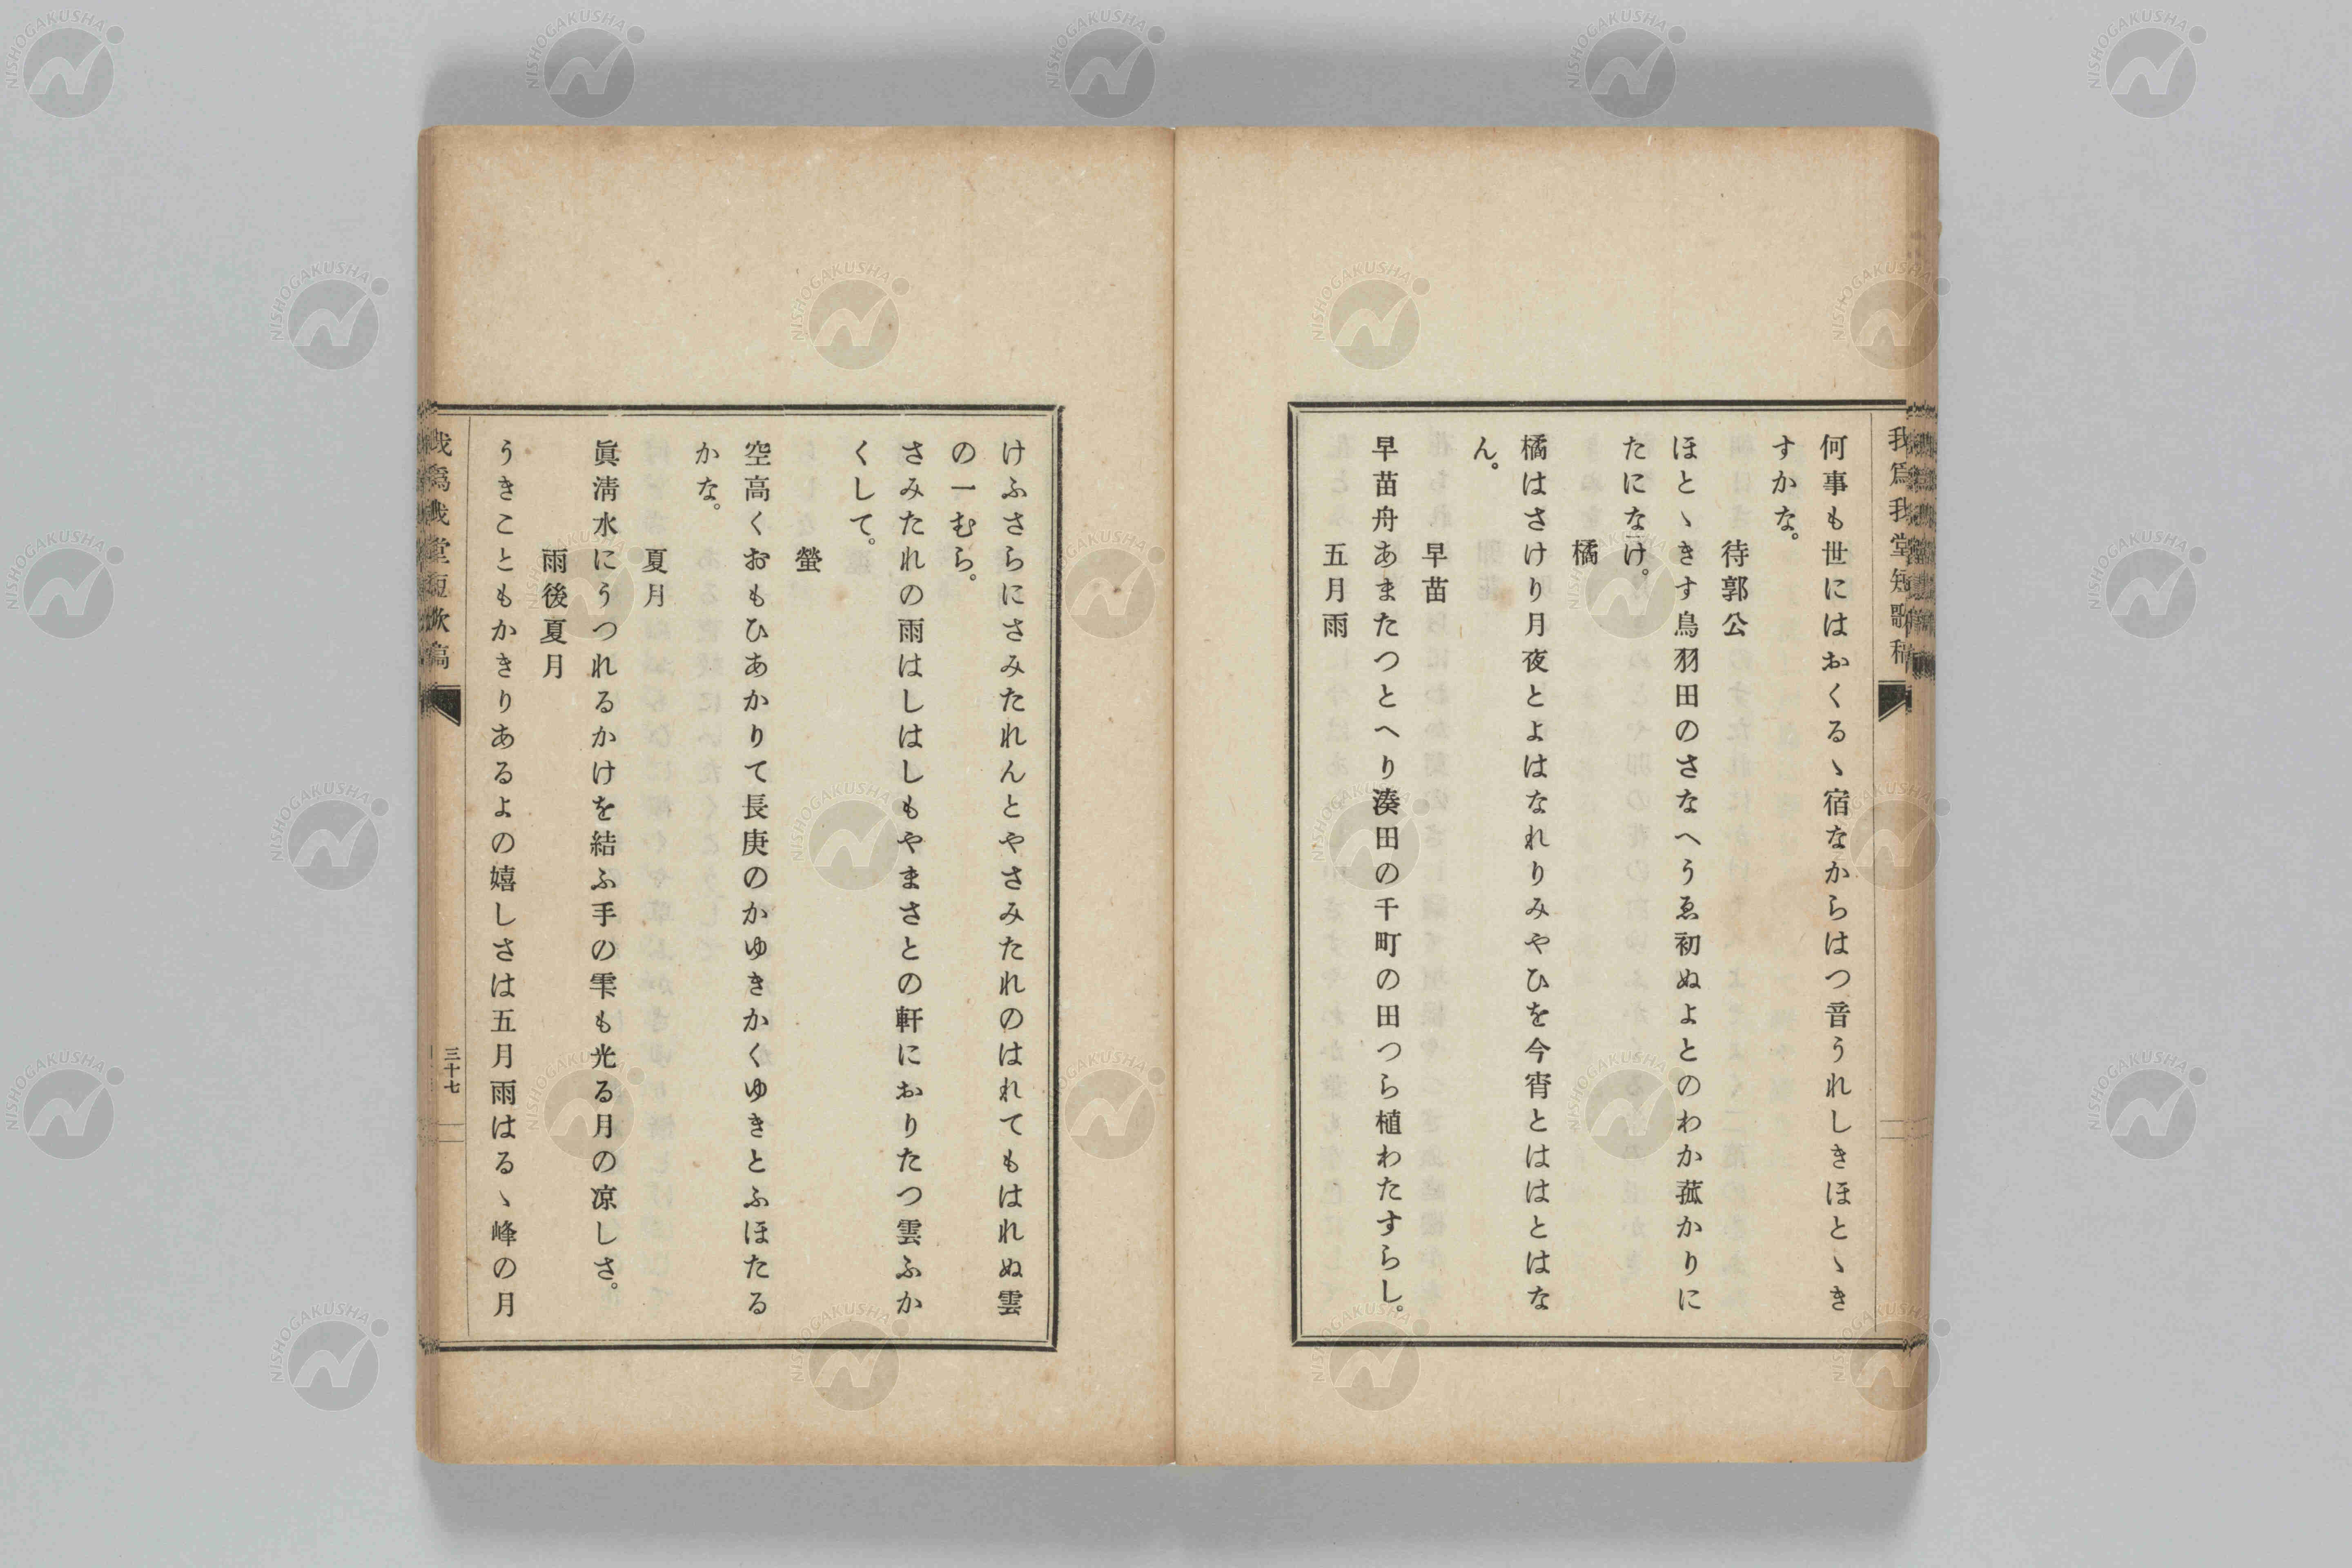 我爲我堂短歌稿
何事も世にはおくるゝ宿なからはつ音うれしきほとゝき
すかな。
待郭公
ほとゝきす鳥羽田のさなへうゑ初ぬよとのわか菰かりに
たになけ。
橘
橘はさけり月夜とよはなれりみやひを今宵とははとはな
ん。
早苗
早苗舟あまたつとへり湊田の千町の田つら植わたすらし。
五月雨
けふさらにさみたれんとやさみたれのはれてもはれぬ雲
の一むら。
さみたれの雨はしはしもやまさとの軒におりたつ雲ふか
くして。
螢
空高くおもひあかりて長庚のかゆきかくゆきとふほたる
かな。
夏月
眞淸水にうつれるかけを結ふ手の雫も光る月の凉しさ。
雨後夏月
うきこともかきりあるよの嬉しさは五月雨はるゝ峰の月
我爲我堂短歌稿
三十七
NISHOGAKUSHA